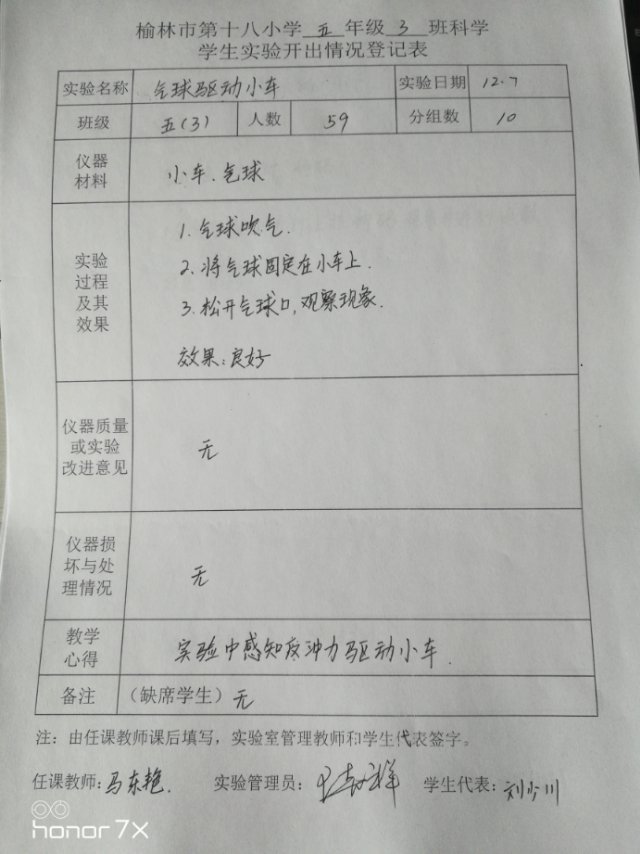 榆林市第十八小学 五 年级 3 班科学
学生实验开出情况登记表
实验名称 气球驱动小车 实验日期 12.7
班级 五(3) 人数 59 分组数 10
仪器
材料
小车、气球
实验
过程
及其
效果
1. 气球吹气.
2. 将气球固定在小车上.
3. 松开气球口,观察现象.
效果:良好
仪器质量
或实验
改进意见
无
仪器损
坏与处
理情况
无
教学
心得
实验中感知反冲力驱动小车.
备注 (缺席学生) 无
注:由任课教师课后填写,实验室管理教师和学生代表签字。
任课教师:马东艳. 实验管理员: 学生代表:刘少川
honor 7X